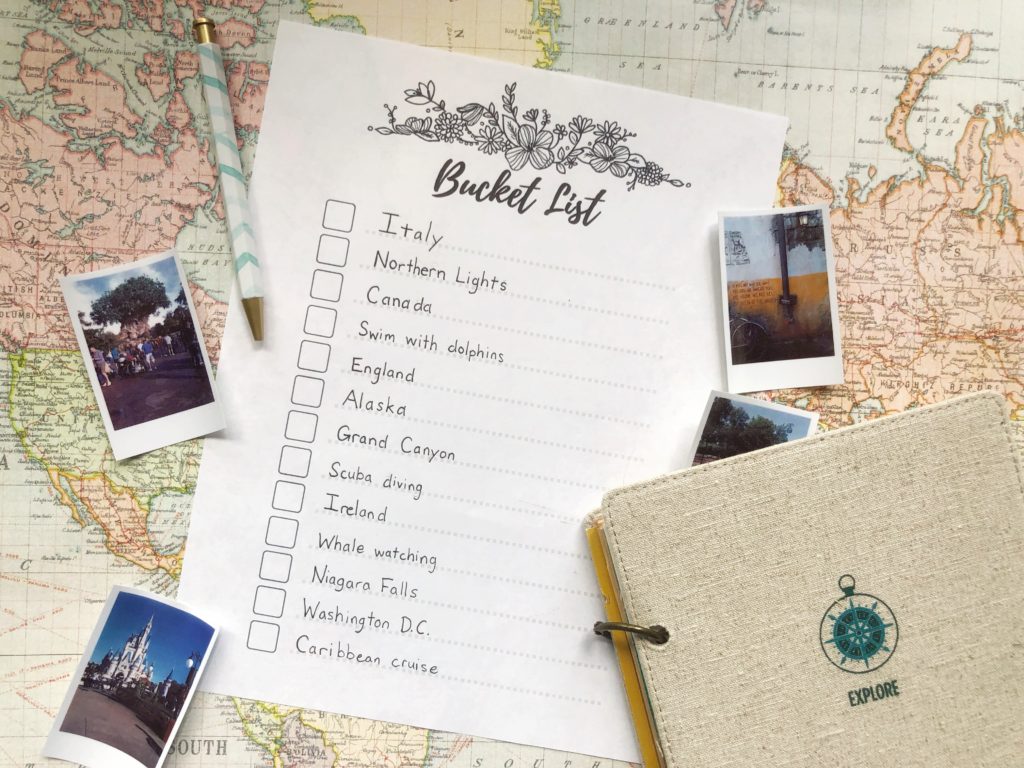 GREENLAND
SEA
BARENTS SEA
KARA
SEA
Bucket List
Italy
Northern Lights
Canada
Swim with dolphins
England
Alaska
Grand Canyon
Scuba diving
Ireland
Whale watching
Niagara Falls
Washington D.C.
Caribbean cruise
EXPLORE
SOUTH